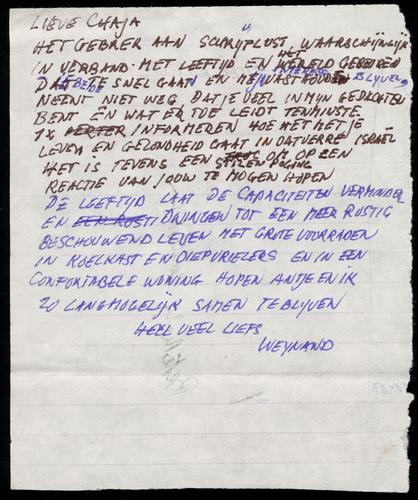 LIEVE CHAJA
HET GEBREK AAN SCHRIJFLUST, WAARSCHIJNLIJK
IN VERBAND MET LEEFTIJD EN HET WERELD GEBEUREN
DAT TE SNEL GAAT EN ME VASTHOUDEN BLIJVEN
NEEMT NIET WEG DAT JE VEEL IN MIJN GEDACHTEN
BENT EN WAT ER TOE LEIDT TENMINSTE
1X INFORMEREN HOE HET MET JE
LEVEN EN GEZONDHEID GAAT IN DAT VERRE ISRAEL
HET IS TEVENS EEN POGING OM OP EEN
REACTIE VAN JOUW TE MOGEN HOPEN
DE LEEFTIJD LAAT DE CAPACITEITEN VERMINDER
EN DWINGEN TOT EEN MEER RUSTIG
BESCHOUWEND LEVEN MET GROTE VOORRADEN
IN KOELKAST EN DIEPVRIEZERS EN IN EEN
COMFORTABELE WONING HOPEN ANTJE EN IK
ZO LANG MOGELIJK SAMEN TE BLIJVEN
HEEL VEEL LIEFS
WEYNAND